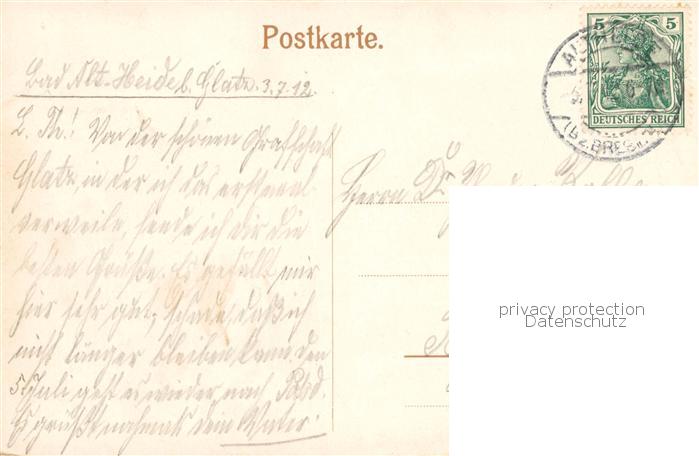 Postkarte.
5 5
DEUTSCHES REICH
(BZ. BRESL.)
Bad Alt-Heide b. Glatz. 3.7.12.
L. Th.! Von der schönen Grafschaft
Glatz, in der ich das erstemal
verweile, sende ich dir die
besten Grüße. Es gefällt mir
hier sehr gut, schade, daß ich
nicht länger bleiben kann, den
5. Juli geht es wieder nach
Es grüßt nochmals dein Vater.
Herrn Dr.
privacy protection
Datenschutz